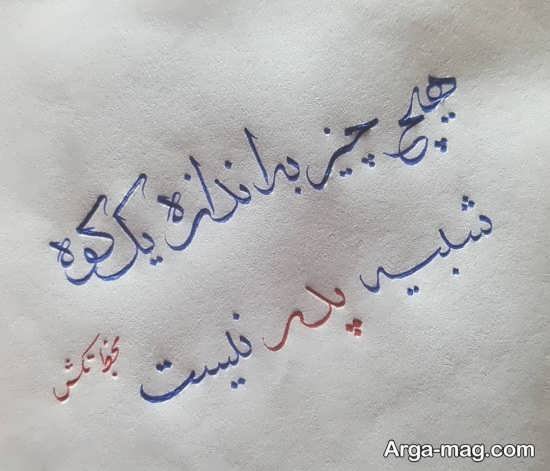 هیچ چیز به اندازه یک کوه
شبیه پدر نیست
Arga-mag.com